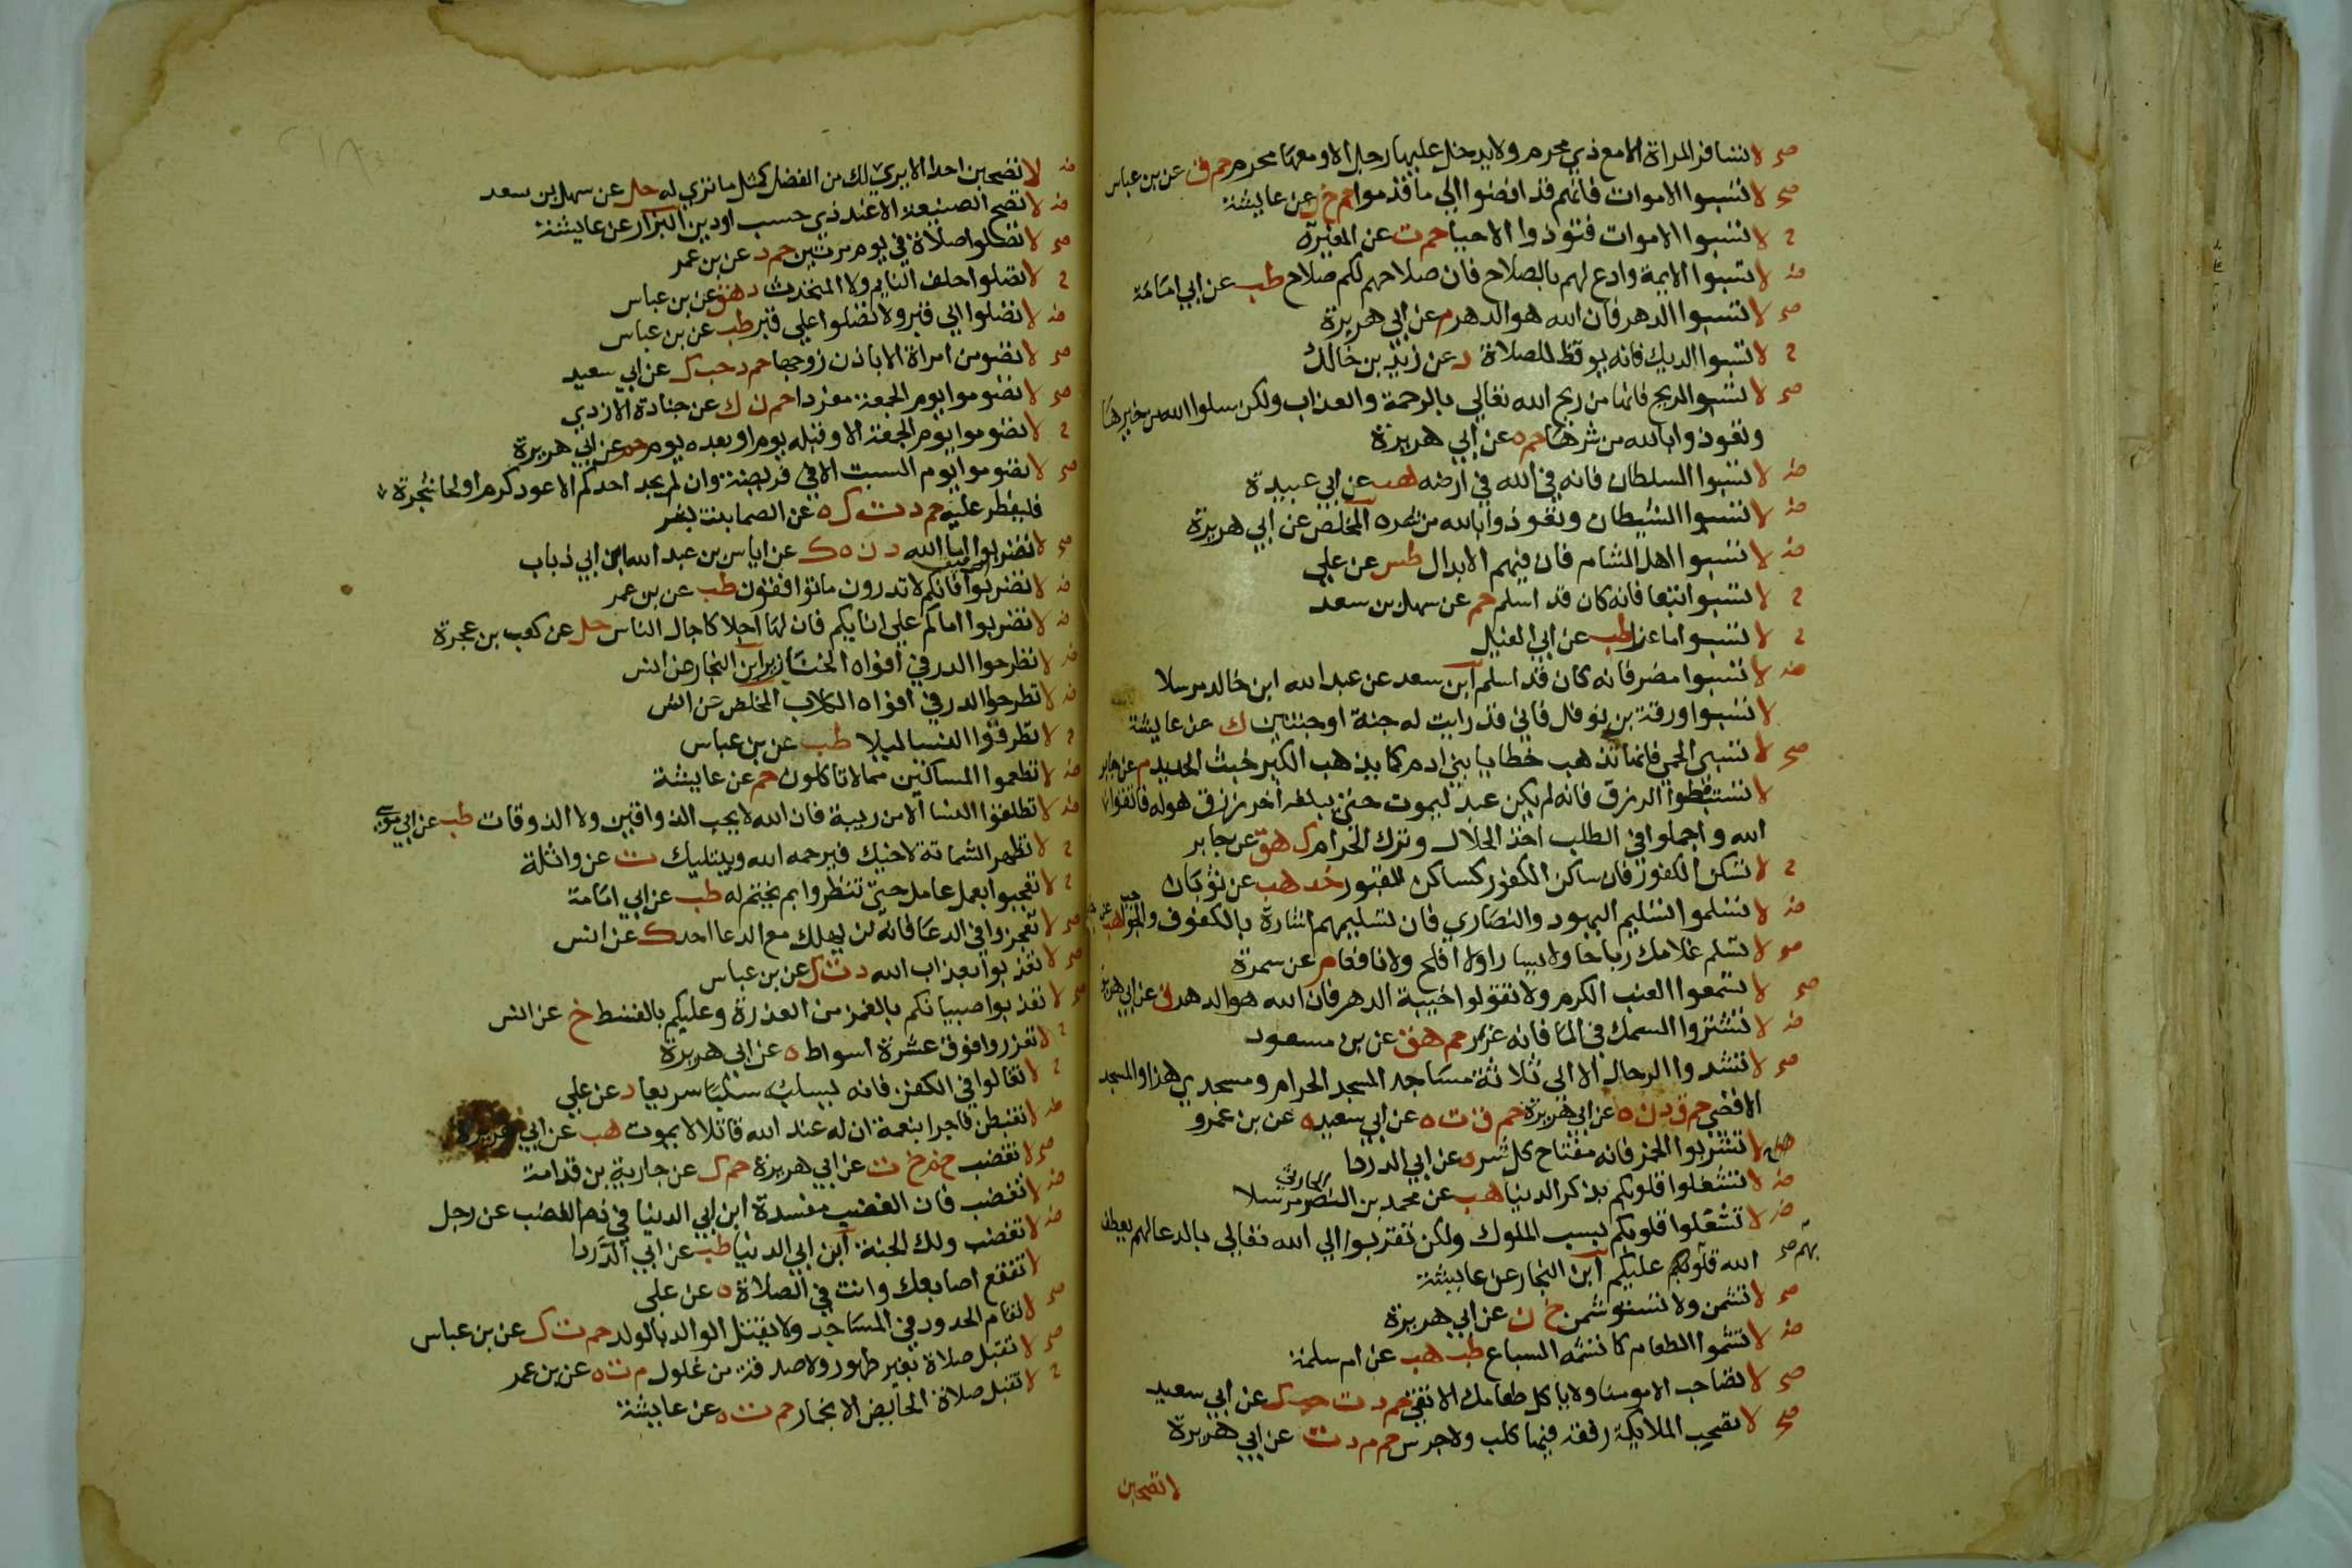 صح لا تسافر المراة الا مع ذي محرم ولا يدخل عليها رجل الا ومعها محرم حم ق عن بن عباس
صح لا تسبوا الاموات فانهم قد افضوا الي ما قدموا حم خ ن عن عايشة
ح لا تسبوا الاموات فتوذوا الاحيا حم ت عن المغيرة
ض لا تسبوا الايمة وادع لهم بالصلاح فان صلاحهم لكم صلاح طب عن ابي امامة
صح لا تسبوا الدهر فان الله هو الدهر م عن ابي هريرة
ح لا تسبوا الديك فانه يوقظ للصلاة د عن زيد بن خالد
صح لا تسبوا الريح فانها من ريح الله تعالي بالرحمة والعذاب ولكن سلوا الله من خيرها
وتعوذوا بالله من شرها حم ه عن ابي هريرة
ض لا تسبوا السلطان فانه في الله في ارضه هب عن ابي عبيدة
ض لا تسبوا الشيطان وتعوذوا بالله من شره المخلص عن ابي هريرة
ض لا تسبوا اهل الشام فان فيهم الابدال طس عن علي
ح لا تسبوا تبعا فانه كان قد اسلم حم عن سهل بن سعد
ح لا تسبوا ماعزا طب عن ابي الفيل
ض لا تسبوا مضر فانه كان قد اسلم ابن سعد عن عبد الله ابن خالد مرسلا
لا تسبوا ورقة بن نوفل فاني قد رايت له جنة او جنتين ك عن عايشة
صح لا تسبي الحمي فانها تذهب خطايا بني ادم كما يذهب الكير خبث الحديد م عن جابر
لا تستبطوا الرزق فانه لم يكن عبد ليموت حتي يبلغه اخر رزق هو له فاتقوا
الله واجملوا في الطلب اخذ الحلال وترك الحرام ك هق عن جابر
ح لا تسكن الكفور فان ساكن الكفور كساكن القبور خد هب عن ثوبان
ض لا تسلموا تسليم اليهود والنصاري فان تسليمهم اشارة بالكفوف والحواجب هب عن جابر
صح لا تسم غلامك رباحا ولا يسارا ولا افلح ولا نافعا م عن سمرة
صح لا تسموا العنب الكرم ولا تقولوا خيبة الدهر فان الله هو الدهر ق عن ابي هريرة
ض لا تشتروا السمك في الما فانه غرر حم هق عن بن مسعود
صح لا تشدوا الرحال الا الي ثلاثة مساجد المسجد الحرام ومسجدي هذا والمسجد
الاقصي حم ق د ن ه عن ابي هريرة حم ق ت ه عن ابي سعيد ه عن بن عمرو
صح لا تشربوا الخمر فانه مفتاح كل شر ه عن ابي الدردا
ض لا تشغلوا قلوبكم بذكر الدنيا هب عن محمد بن النضر الحارثي مرسلا
ض لا تشغلوا قلوبكم بسب الملوك ولكن تقربوا الي الله تعالي بالدعا لهم يعطف
الله قلوبهم عليكم ابن النجار عن عايشة
صح لا تشمن ولا تستوشمن خ ن عن ابي هريرة
ض لا تشموا الطعام كما تشمه السباع طب هب عن ام سلمة
صح لا تصاحب الا مومنا ولا ياكل طعامك الا تقي حم د ت حب ك عن ابي سعيد
صح لا تصحب الملايكة رفقة فيها كلب ولا جرس حم م د ت عن ابي هريرة
لا تصحبن
ض لا تصحبن احدا لا يري لك من الفضل كمثل ما تري له حل عن سهل بن سعد
ض لا تصلح الصنيعة الا عند ذي حسب او دين البزار عن عايشة
صح لا تصلوا صلاة في يوم مرتين حم د عن بن عمر
ح لا تصلوا خلف النايم ولا المتحدث د هق عن بن عباس
ض لا تصلوا الي قبر ولا تصلوا علي قبر طب عن بن عباس
صح لا تصومن امراة الا باذن زوجها حم د حب ك عن ابي سعيد
صح لا تصوموا يوم الجمعة مفردا حم ن ك عن جنادة الازدي
ح لا تصوموا يوم الجمعة الا وقبله يوم او بعده يوم حم عن ابي هريرة
صح لا تصوموا يوم السبت الا في فريضة وان لم يجد احدكم الا عود كرم او لحا شجرة
فليفطر عليه حم د ت ه ك عن الصما بنت بسر
صح لا تضربوا اما الله د ن ه ك عن اياس بن عبد الله ابن ابي ذباب
ض لا تضربوا الرقيق فانكم لا تدرون ما توافقون طب عن بن عمر
ض لا تضربوا اماكم علي انايكم فان لها اجلا كاجال الناس حل عن كعب بن عجرة
ض لا تطرحوا الدر في افواه الخنازير ابن النجار عن انس
ض لا تطرحوا الدر في افواه الكلاب المخلص عن انس
ح لا تطرقوا النسا ليلا طب عن بن عباس
ض لا تطعموا المساكين مما لا تاكلون حم عن عايشة
ض لا تطلقوا النسا الا من ريبة فان الله لا يحب الذواقين ولا الذوقات طب عن ابي موسي
ح لا تظهر الشماتة لاخيك فيرحمه الله ويبتليك ت عن واثلة
ح لا تعجبوا بعمل عامل حتي تنظروا بم يختم له طب عن ابي امامة
صح لا تعجزوا في الدعا فانه لن يهلك مع الدعا احد ك عن انس
صح لا تعذبوا بعذاب الله د ت ك عن بن عباس
صح لا تعذبوا صبيانكم بالغمز من العذرة وعليكم بالقسط خ عن انس
ح لا تعزروا فوق عشرة اسواط ه عن ابي هريرة
ح لا تغالوا في الكفن فانه يسلبه سلبا سريعا د عن علي
ض لا تغبطن فاجرا بنعمة ان له عند الله قاتلا لا يموت هب عن ابي هريرة
صح لا تغضب حم خ ت عن ابي هريرة حم ك عن جارية بن قدامة
ض لا تغضب فان الغضب مفسدة ابن ابي الدنيا في ذم الغضب عن رجل
ض لا تغضب ولك الجنة ابن ابي الدنيا طب عن ابي الدردا
لا تفقع اصابعك وانت في الصلاة ه عن علي
صح لا تقام الحدود في المساجد ولا يقتل الوالد بالولد حم ت ك عن بن عباس
صح لا تقبل صلاة بغير طهور ولا صدقة من غلول م ت ه عن بن عمر
ح لا تقبل صلاة الحايض الا بخمار حم ت ه عن عايشة